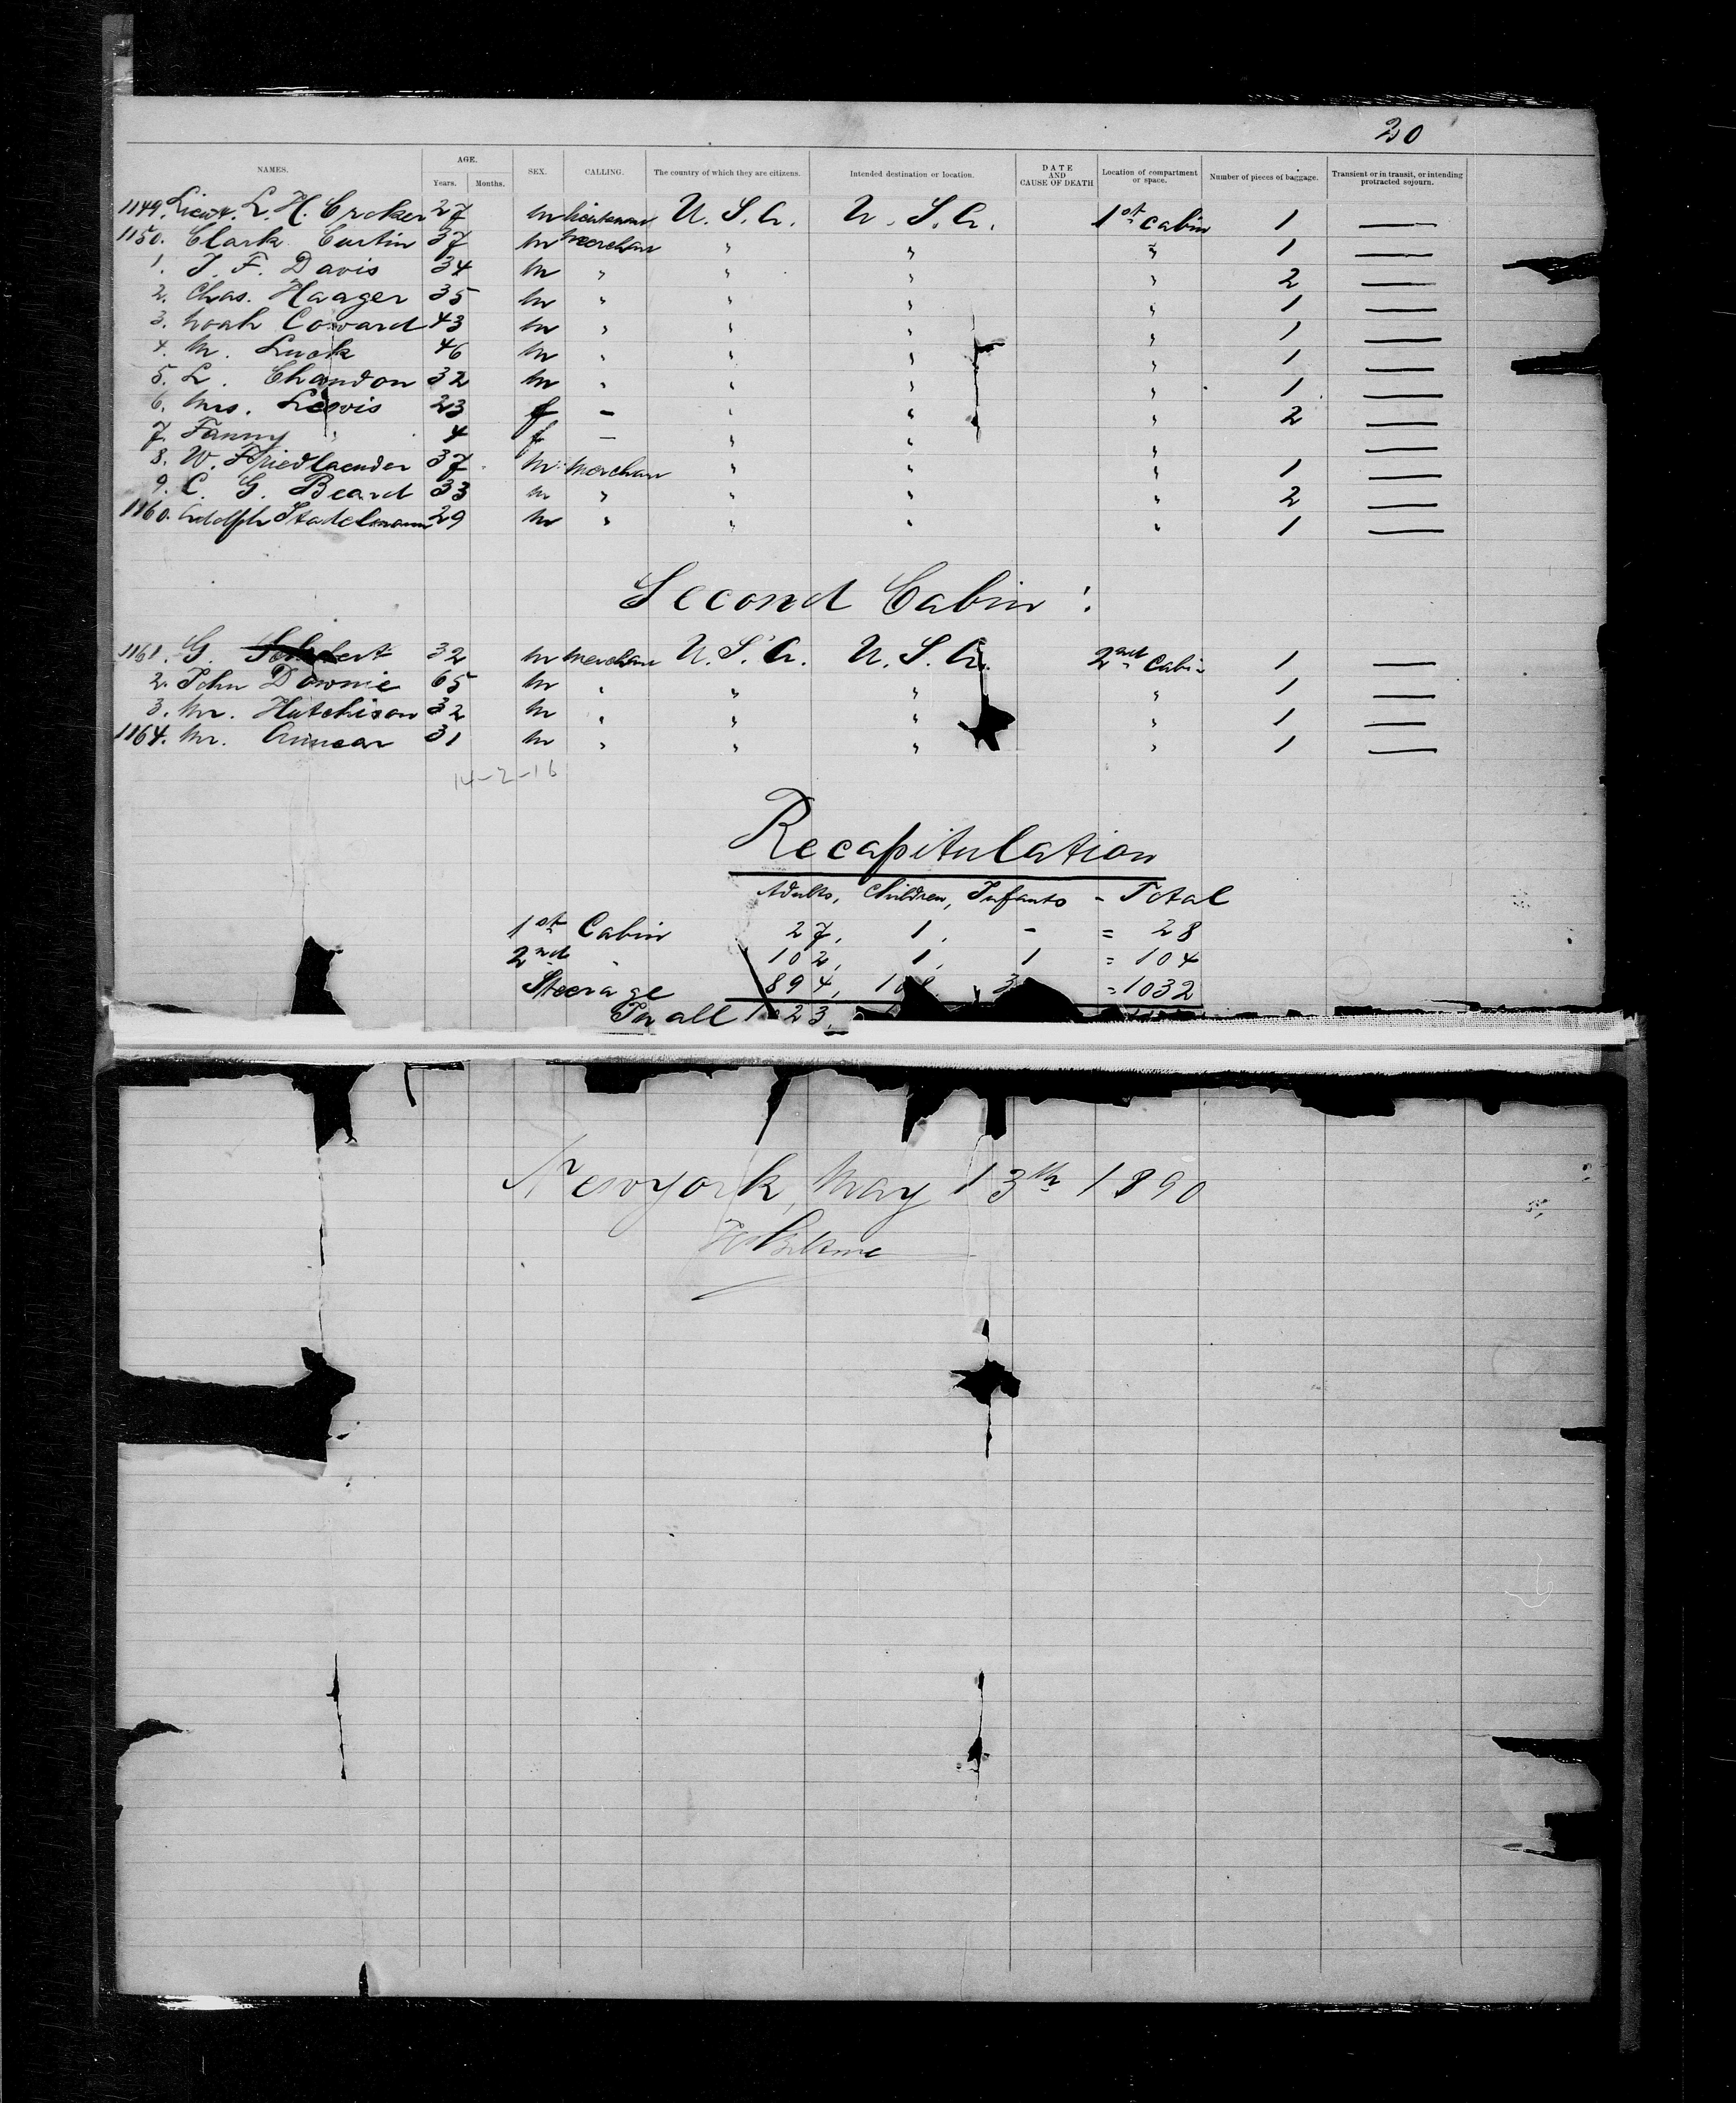 20
NAMES. AGE. Years. Months. SEX. CALLING. The country of which they are citizens. Intended destination or location. DATE AND CAUSE OF DEATH Location of compartment or space. Number of pieces of baggage. Transient or in transit, or intending protracted sojourn.
1149. Lieut. L. H. Croker 27 m U. S. A. U. S. A. 1st Cabin 1 —
1150. Clark Curtin 37 m Merchant " " " 1 —
1. J. F. Davis 34 m " " " " 2 —
2. Chas. Haager 35 m " " " " 1 —
3. Noah Coward 43 m " " " " 1 —
4. M. Luck 46 m " " " " 1 —
5. L. Chandon 32 m " " " " 1 —
6. Mrs. Lewis 23 f — " " " 2 —
7. Fanny " 4 f — " " " —
8. W. Friedlaender 37 m Merchant " " " 1 —
9. C. G. Beard 33 m " " " " 2 —
1160. Adolph Stadelmann 29 m " " " " 1 —
Second Cabin :
1161. G. 32 m Merchant U. S. A. U. S. A. 2nd Cabin 1 —
2. John Downie 65 m " " " " 1 —
3. Mr. Hutchison 32 m " " " " 1 —
1164. Mr. 31 m " " " " 1 —
14-2-16
Recapitulation
Adults, Children, Infants - Total
1st Cabin 27, 1, - = 28
2nd " 102, 1, 1 = 104
Steerage 894, = 1032
In all 1023,
Newyork, May 13th 1890